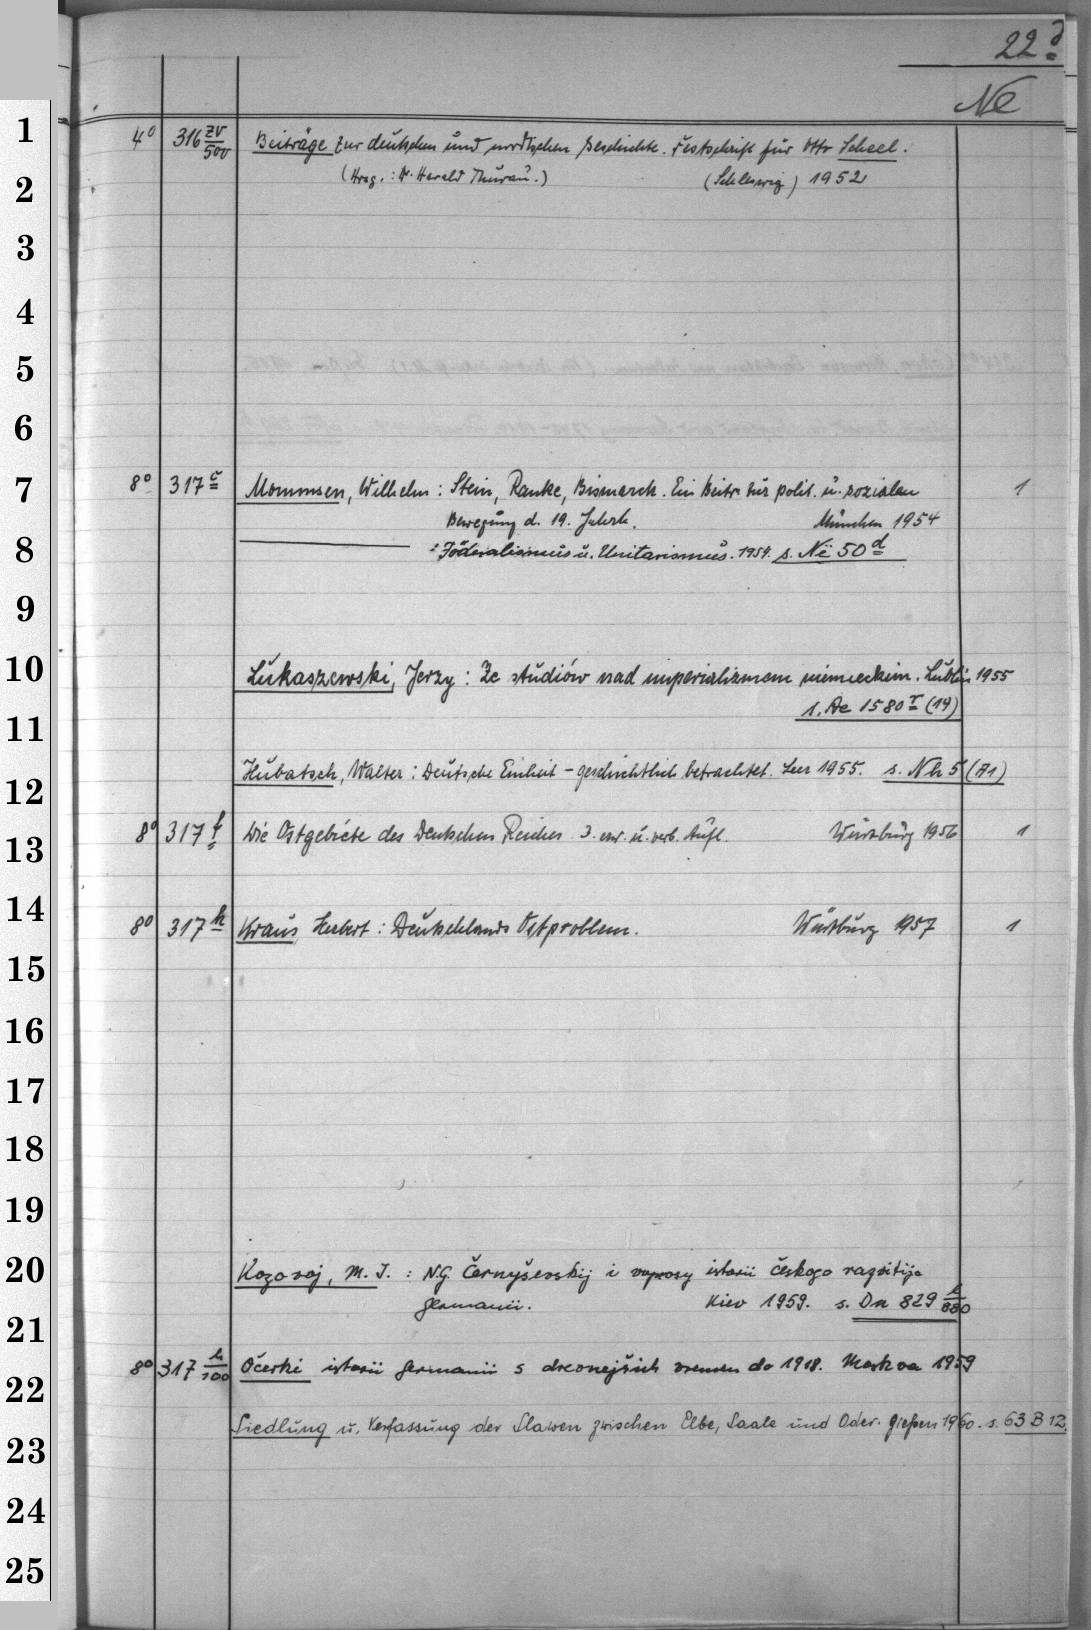 22 d
Ne
1
4° 316 zv/500 Beiträge zur deutschen und nordischen Geschichte. Festschrift für Otto Scheel.
2
(Hrsg.: H. Harald Thurau.) (Schleswig) 1952
3
4
5
6
7
8° 317 c Mommsen, Wilhelm: Stein, Ranke, Bismarck. Ein Beitr. zur polit. u. sozialen 1
Bewegung d. 19. Jahrh. München 1954
8
: Föderalismus u. Unitarismus. 1954. s. Në 50 d
9
10
Łukaszewski, Jerzy: Ze studiów nad imperializmem niemieckim. Lublin 1955
s. Ae 1580 r (14)
11
Hubatsch, Walter: Deutsche Einheit – geschichtlich betrachtet. Leer 1955. s. Nh 5 (A1)
12
8° 317 f Die Ostgebiete des Deutschen Reiches 3. erw. u. verb. Aufl. Würzburg 1956 1
13
14
8° 317 h Kraus, Herbert: Deutschlands Ostproblem. Würzburg 1957 1
15
16
17
18
19
20
Kozovoj, M. I.: N.G. Černyševskij i voprosy istorii českogo razvitija
Germanii. Kiev 1959. s. Dn 829 k/880
21
8° 317 h/100 Očerki istorii Germanii s drevnejšich vremen do 1918. Moskva 1959
22
Siedlung u. Verfassung der Slawen zwischen Elbe, Saale und Oder. Gießen 1960. s. 63 B 12.
23
24
25